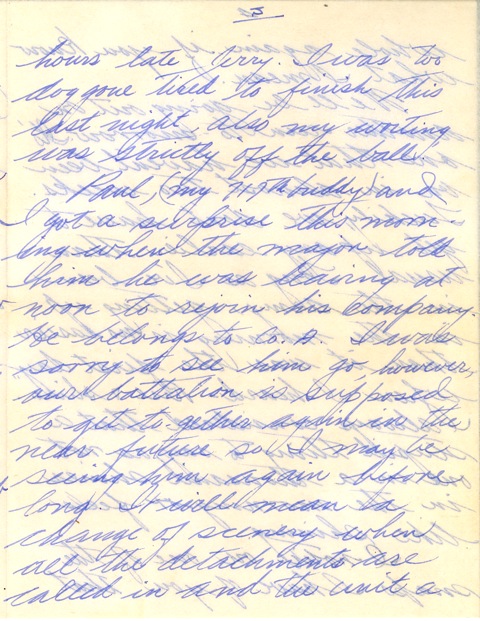 3
hours late Jerry. I was too
doggone tired to finish this
last night, also my writing
was strictly off the ball.
Paul, (my 717th buddy) and
I got a surprise this morn-
ing when the major told
him he was leaving at
noon to rejoin his company.
He belongs to Co. A. I was
sorry to see him go however,
our battalion is supposed
to get to-gether again in the
near future so I may be
seeing him again before
long. It will mean a
change of scenery when
all the detachments are
called in and the unit a